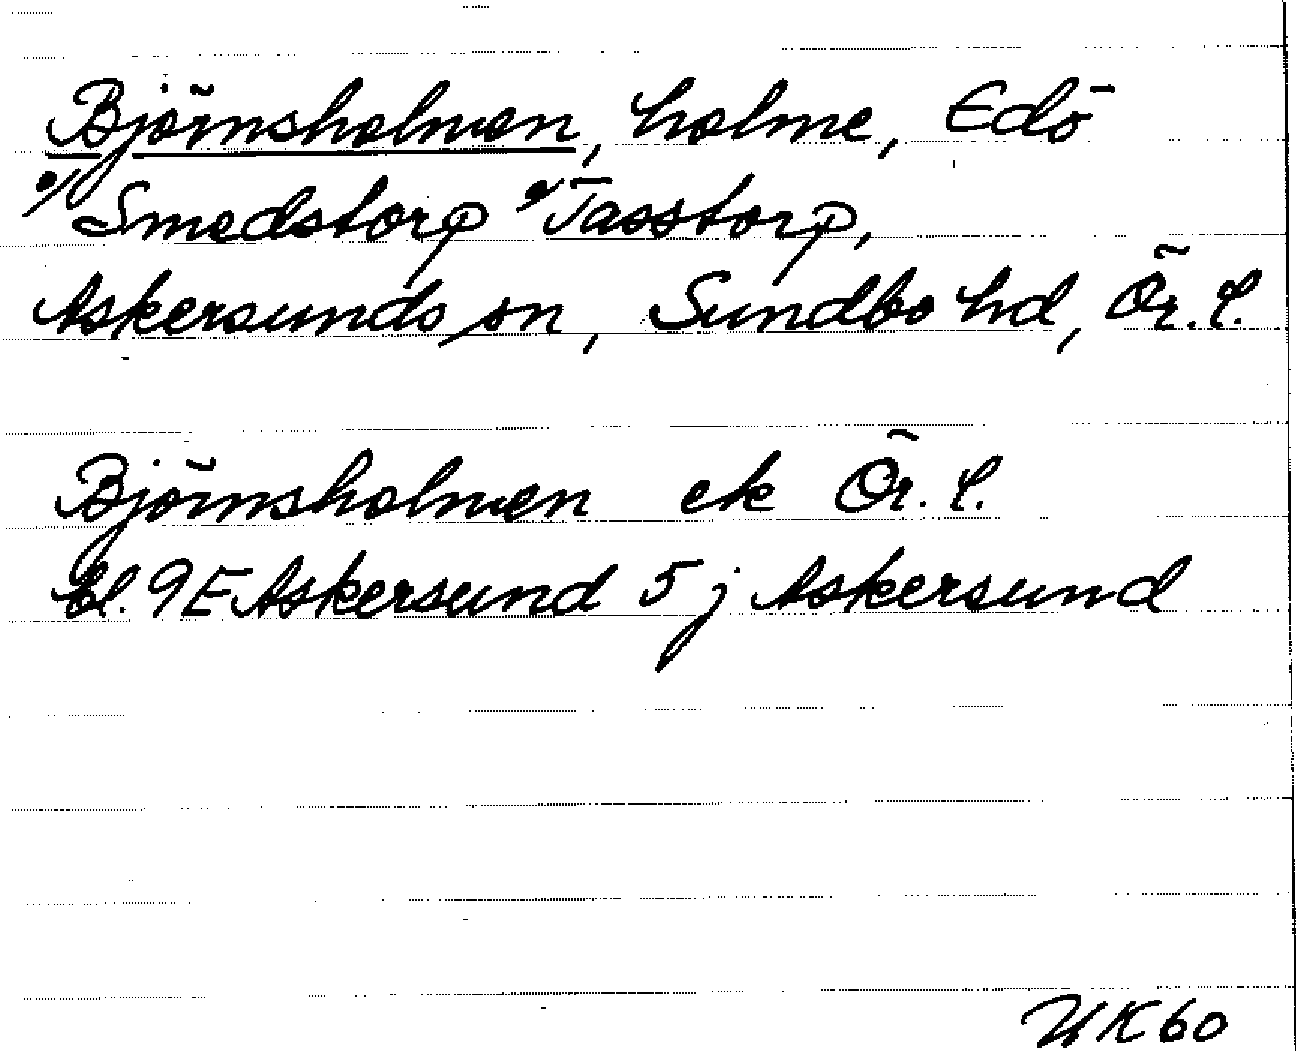 Björnsholmen, holme, Edö
o/ Smedstorp o/ Tasstorp,
Askersunds sn, Sundbo hd, Ör. l.
Björnsholmen ek Ör. l.
bl. 9E Askersund 5 j Askersund
UK60